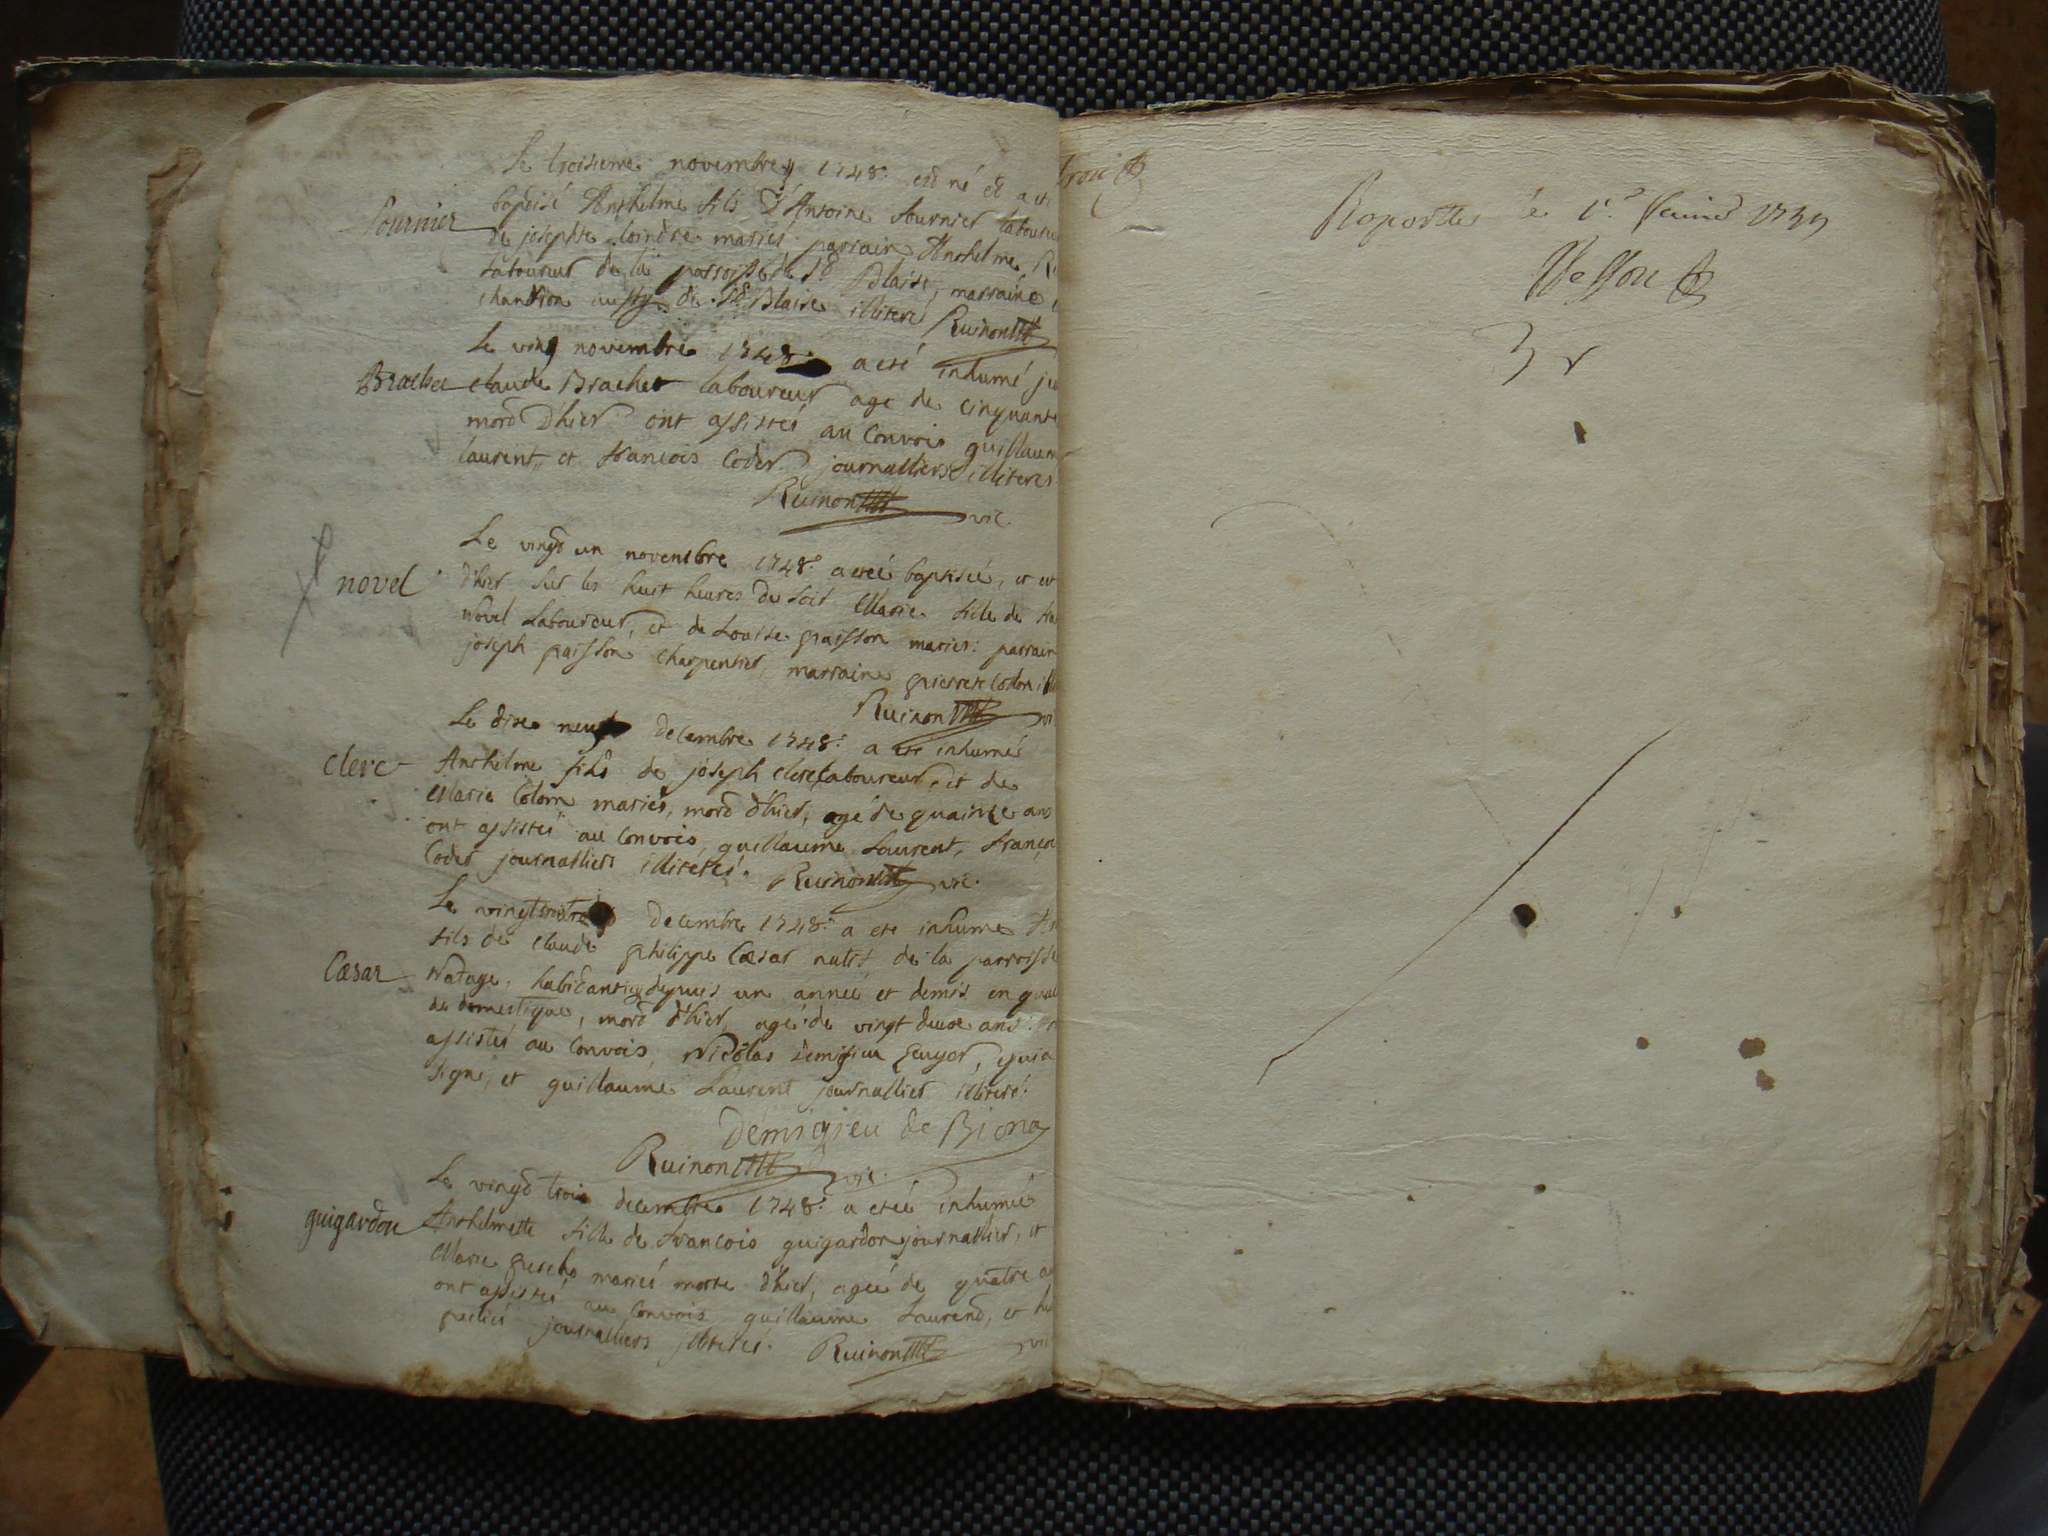 Le troisieme novembre 1748: est né et a eté
Fournier
baptisé Anthelme fils d'Antoine fournier laboureur
de josephte loindre mariés parrain Anthelme
Laboureur de la parroisse de St Blaise, marraine
chandion aussy de St Blaise illiteré Ruinon
Le ving novembre 1748: a eté inhumé
Brachet
claude Brachet laboureur age de cinquante
mord d'hier ont assistés au Convois guillaume
laurent, et francois Coder journalliers illiteres
Ruinon vic.
Le vingd un novembre 1748: a eteé baptiseé, et
novel
d'hier sur les huit heures du soir Marie fille de
Novel Laboureur, et de Louise paisson mariés: parrain
joseph paisson charpentier, marraine pierrete Colon
Ruinon
Le dixe neuf decembre 1748: a ete inhumé
clerc
Anthelme fils de joseph clerc laboureur, et de
Marie Colom mariés, mord d'hier, agé de quainze ans
ont assistés au Convois, guillaume Laurent, françois
Coder journalliers illiterés. Ruinon vic.
Le vingt decembre 1748: a ete inhume
fils de claude philippe Cæsar natif de la parroisse
Cæsar
Natage, habitant depuis un anneé et demis en
de domestique, mord d'hier, agé de vingt deux ans
assistés au Convois Nicolas Demigieu Ecuyer, qui a
signé, et guillaume Laurent journallier illiteré:
Demigieu de Biona
Ruinon vic.
Le vingd trois decembre 1748: a eteé inhumeé
guigardon
Anthelmette fille de francois guigardon journallier, et
Marie mariés morte d'hier, ageé de quatre
ont assistés au Convois guillaume Laurend, et
journalliers illiterés. Ruinon vic
Raporté le